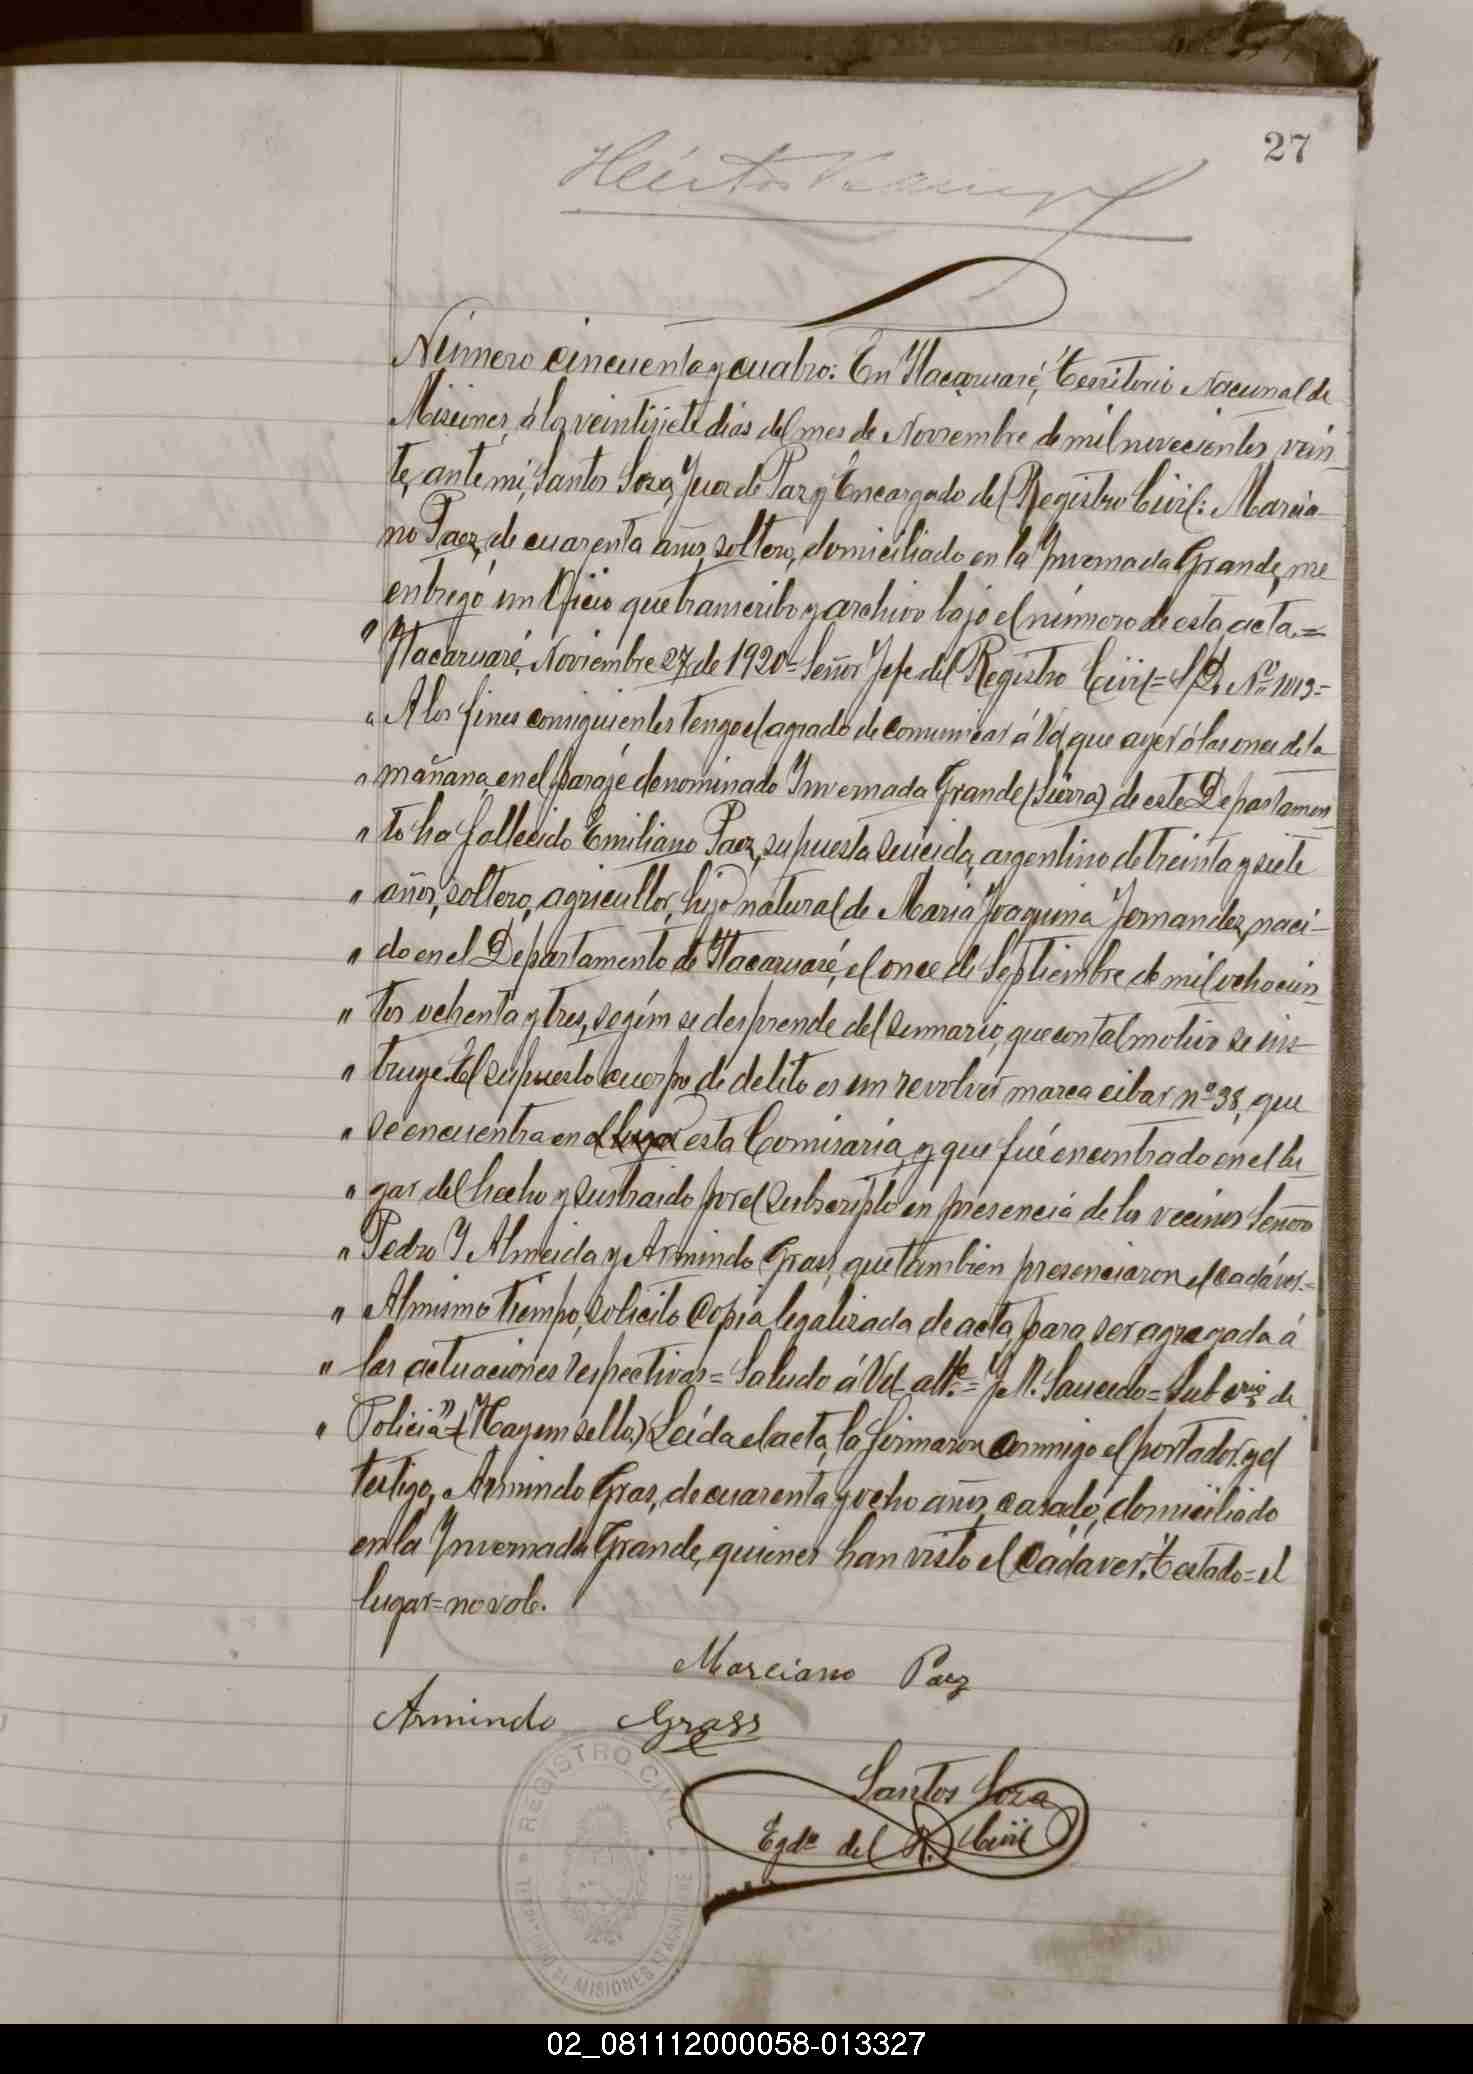 27
Número cincuenta y cuatro: En Itacaruaré, Territorio Nacional de
Misiones, á los veintisiete dias del mes de Noviembre de mil novecientos vein-
te, ante mi, Santos Soza, Juez de Paz y Encargado del Registro Civil: Marcia-
no Paez, de cuarenta años, soltero, domiciliado en la Invernada Grande, me
entregó un Oficio que transcribo y archivo bajo el número de esta acta.=
" Itacaruaré, Noviembre 27 de 1920= Señor Jefe del Registro Civil= S/D. Nº 1013=
" A los fines consiguientes tengo el agrado de comunicar á Vd, que ayer á las once de la
" mañana, en el paraje denominado Invernada Grande (Sierra) de este Departamen-
" to ha fallecido Emiliano Paez, supuesta suicida, argentino de treinta y siete
" años, soltero, agricultor, hijo natural de Maria Joaquina Fernandez, naci-
" do en el Departamento de Itacaruaré, el once de Septiembre de mil ochocien-
" tos ochenta y tres, segúm se desprende del sumario, que con tal motivo se ins-
" truye. El supuesto cuerpo de delito es un revolver marca eibar nº 38, que
" se encuentra en el lugar esta Comisaria, y que fué encontrado en el lu-
" gar del hecho y sustraido por el subscripto en presencia de los vecinos Señores
" Pedro Y Almeida y Armindo Grass, que tambien presenciaron el cadáver.=
" Al mismo tiempo, solicito copia legalizada de acta, para ser agregada á
" las actuaciones respectivas= Saludo á Vd. atte.= J. M. Saucedo= Sub crio de
" Policia"= (Hay un sello.) Leída el acta, la firmaron conmigo el portador y el
testigo, Armindo Gras, de cuarenta y ocho años, casado, domiciliado
en la Invernada Grande, quienes han visto el cadáver. Testado= el
lugar= no vale.
Marciano Paez
Armindo Grass
Santos Soza
Egdo del R. Civil
REGISTRO CIVIL
MISIONES
02_081112000058-013327